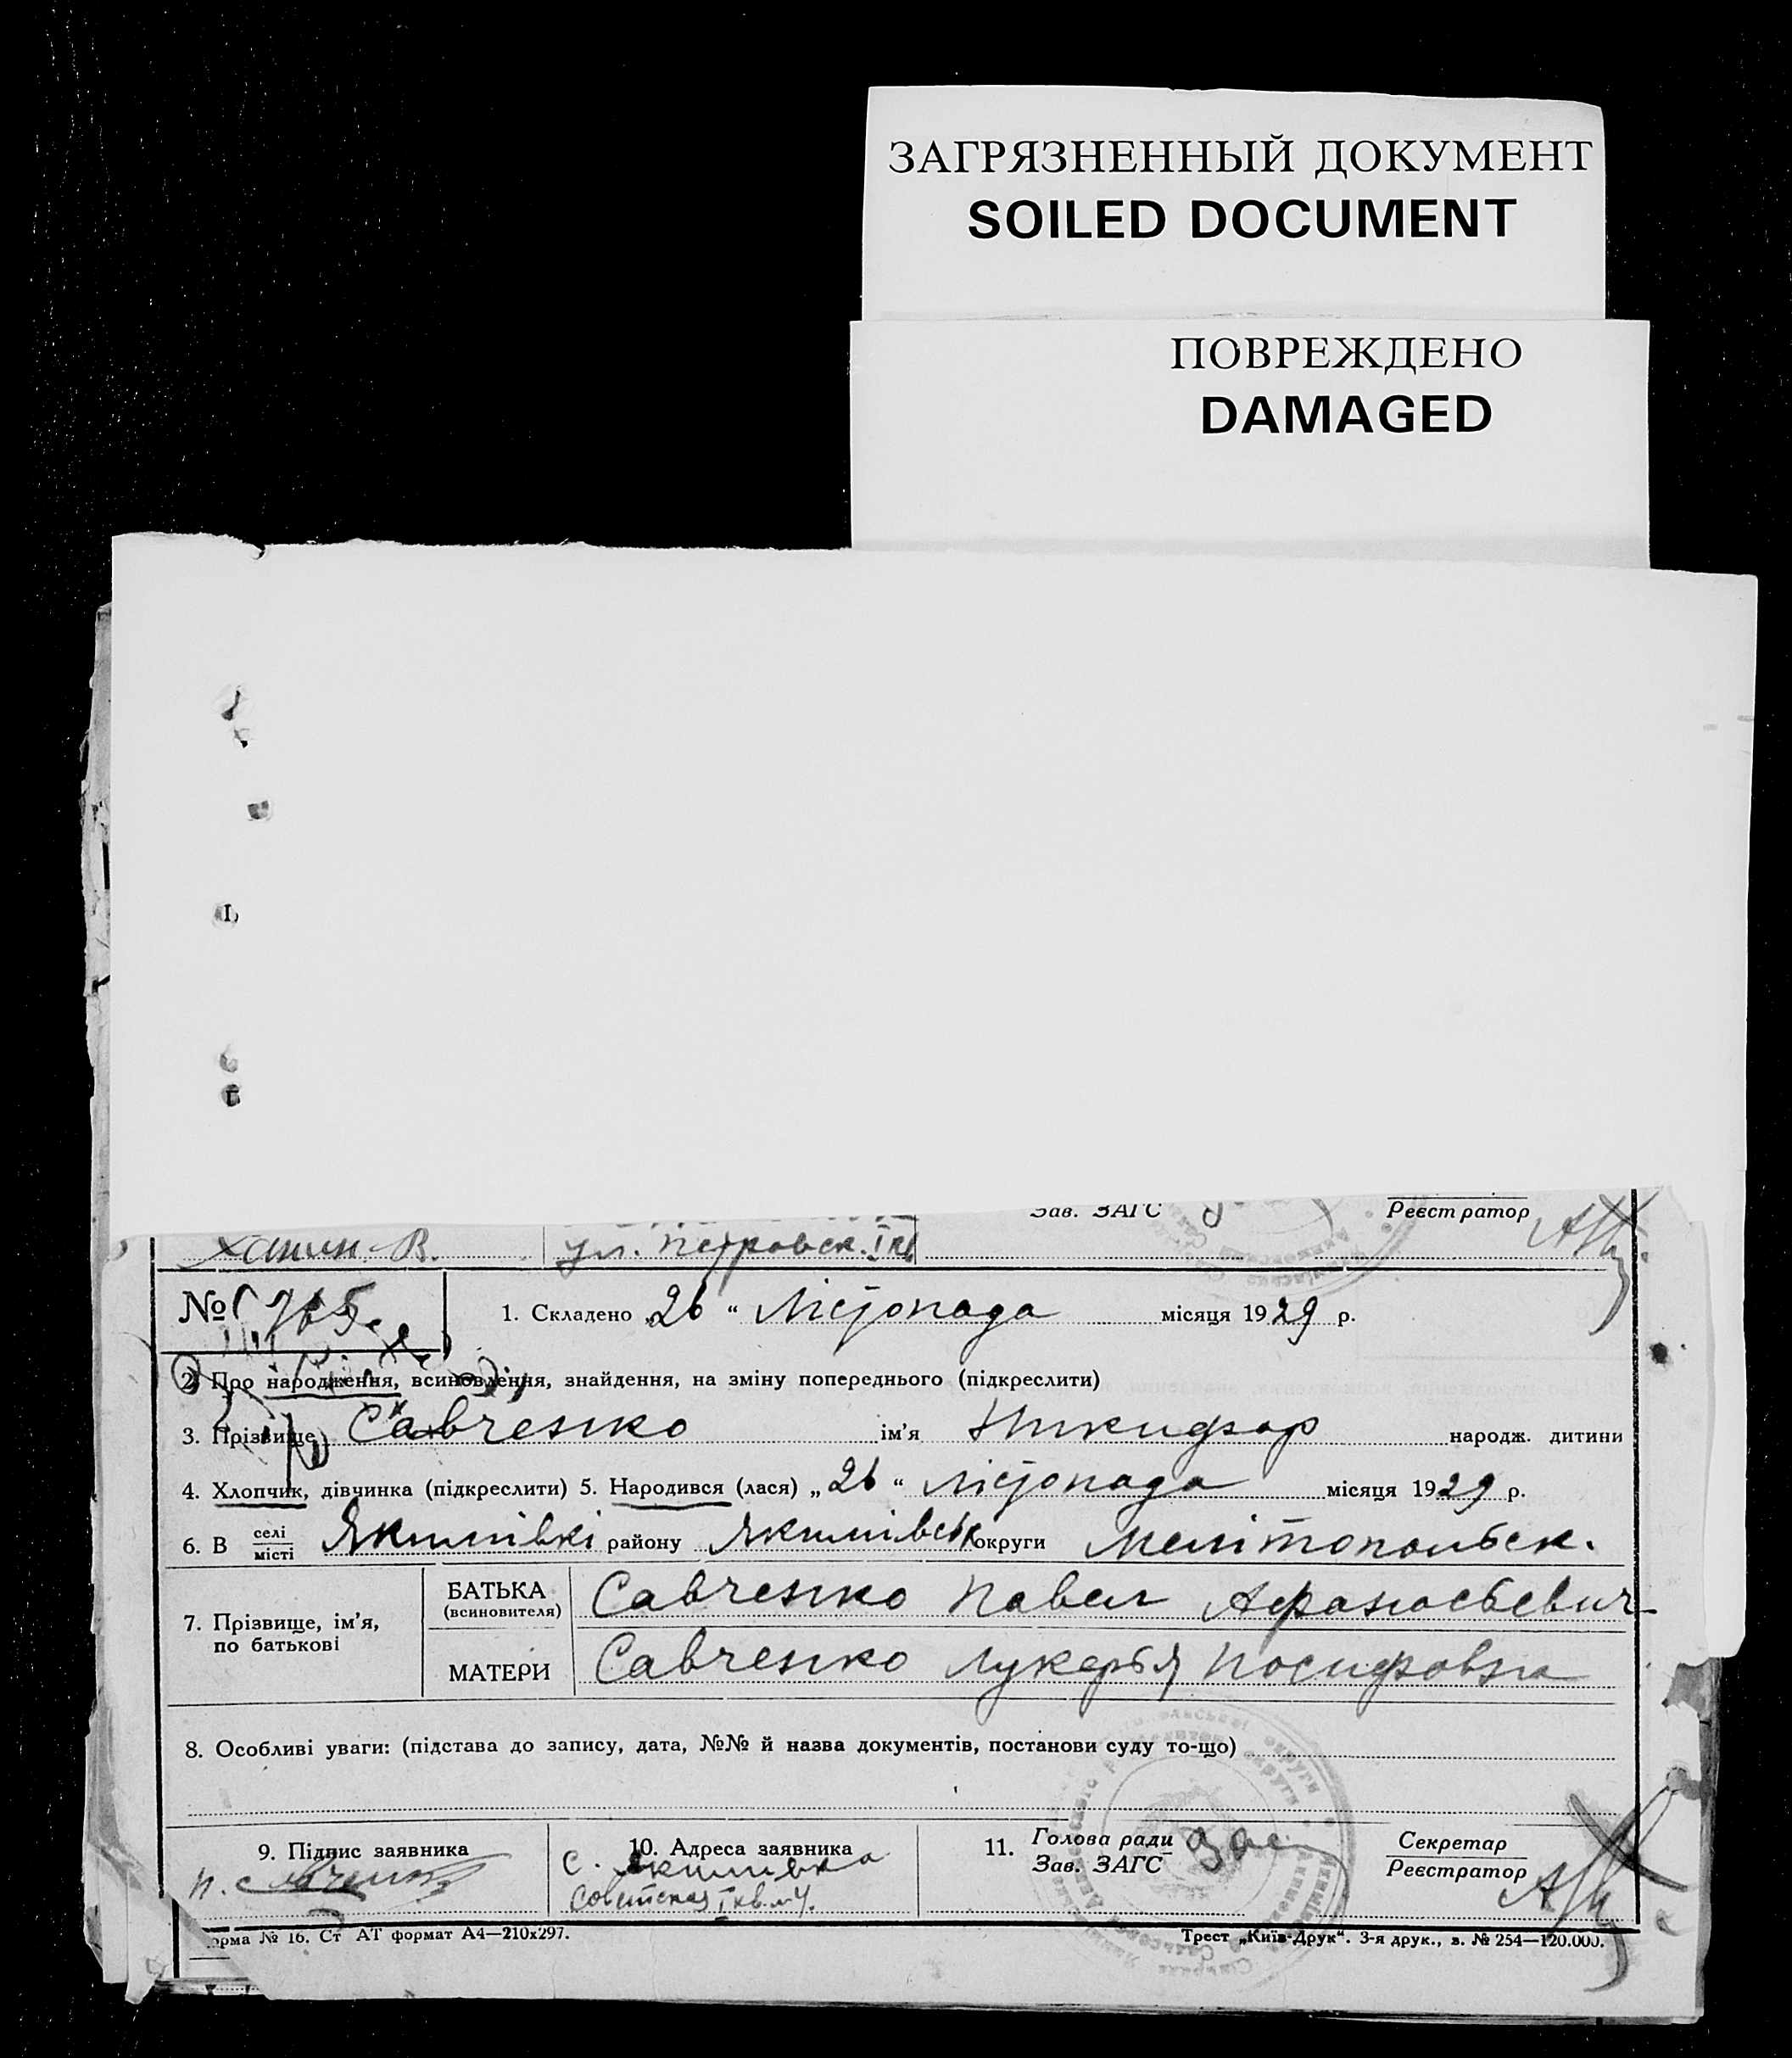 ЗАГРЯЗНЕННЫЙ ДОКУМЕНТ
SOILED DOCUMENT
ПОВРЕЖДЕНО
DAMAGED
Зав. ЗАГС Реєстратор
Ханин В. ул. Петровск. I кв
№ 765 1. Складено „26“ Лістопада місяця 1929 р.
2. Про народження, всиновлення, знайдення, на зміну попереднього (підкреслити)
3. Прізвище Савченко ім'я Никифор народж. дитини
4. Хлопчик, дівчинка (підкреслити) 5. Народився (лася) „26“ лістопада місяця 1929 р.
6. В селі/місті Якимівкі району Якимівськ округи Мелітопольск.
7. Прізвище, ім'я, по батькові
БАТЬКА (всиновителя) Савченко Павел Афанасьевич
МАТЕРИ Савченко Лукерья Иосифовна
8. Особливі уваги: (підстава до запису, дата, №№ й назва документів, постанови суду то-що)
9. Підпис заявника 10. Адреса заявника 11. Голова ради Секретар
Зав. ЗАГС Реєстратор
П. Савченко с. Якимивка
Советская I кв. №4.
орма № 16. Ст АТ формат А4—210х297. Трест „Київ-Друк“. 3-я друк., з. № 254—120.000.